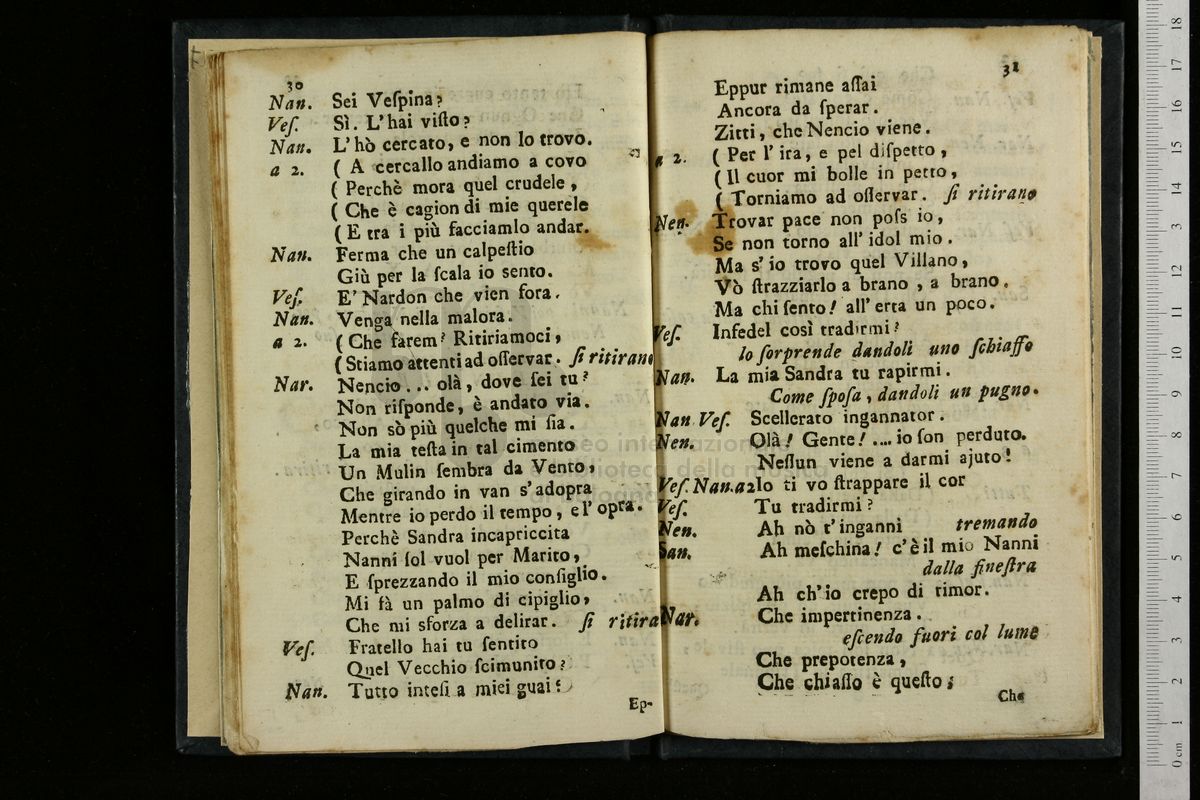 30
Nan. Sei Veſpina?
Veſ. Sì. L'hai viſto?
Nan. L'hò cercato, e non lo trovo.
a 2. ( A cercallo andiamo a covo
( Perchè mora quel crudele,
( Che è cagion di mie querele
( E tra i più facciamlo andar.
Nan. Ferma che un calpeſtio
Giù per la ſcala io sento.
Veſ. E' Nardon che vien fora.
Nan. Venga nella malora.
a 2. ( Che farem? Ritiriamoci,
( Stiamo attenti ad oſſervar. ſi ritirano
Nar. Nencio... olà, dove ſei tu?
Non riſponde, è andato via.
Non sò più quelche mi ſia.
La mia teſta in tal cimento
Un Mulin ſembra da Vento,
Che girando in van s'adopra
Mentre io perdo il tempo, e l'opra.
Perchè Sandra incapriccita
Nanni ſol vuol per Marito,
E ſprezzando il mio conſiglio.
Mi fà un palmo di cipiglio,
Che mi sforza a delirar. ſi ritira
Veſ. Fratello hai tu ſentito
Quel Vecchio ſcimunito?
Nan. Tutto inteſi a miei guai:
Ep-
31
Eppur rimane aſſai
Ancora da ſperar.
Zitti, che Nencio viene.
a 2. ( Per l'ira, e pel diſpetto,
( Il cuor mi bolle in petto,
( Torniamo ad oſſervar. ſi ritirano
Nen. Trovar pace non poſs io,
Se non torno all'idol mio.
Ma s'io trovo quel Villano,
Vò ſtrazziarlo a brano, a brano.
Ma chi ſento! all'erta un poco.
Veſ. Infedel così tradirmi?
lo ſorprende dandoli uno ſchiaffo
Nan. La mia Sandra tu rapirmi.
Come ſpoſa, dandoli un pugno.
Nan Veſ. Scellerato ingannator.
Nen. Olà! Gente! .... io ſon perduto.
Neſſun viene a darmi ajuto!
Veſ. Nan. a2 Io ti vo ſtrappare il cor
Veſ. Tu tradirmi?
Nen. Ah nò t'inganni tremando
San. Ah meſchina! c'è il mio Nanni
dalla fineſtra
Ah ch'io crepo di timor.
Nar. Che impertinenza.
eſcendo fuori col lume
Che prepotenza,
Che chiaſſo è queſto;
Che